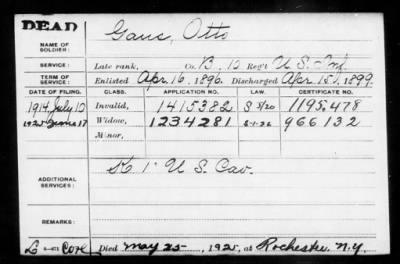 DEAD
NAME OF SOLDIER: Ganc, Otto
SERVICE: Late rank, Co. B, 12 Reg't U. S. Inf
TERM OF SERVICE: Enlisted Apr. 16, 1896. Discharged Apr 15, 1899.
DATE OF FILING. CLASS. APPLICATION NO. LAW. CERTIFICATE NO.
1914 July 10 Invalid, 1415382 1195.478
1925 17 Widow, 1234281 966132
Minor,
ADDITIONAL SERVICES: K 1" U S. Cav.
REMARKS:
Died May 25, 1925, at Rochester N.Y.